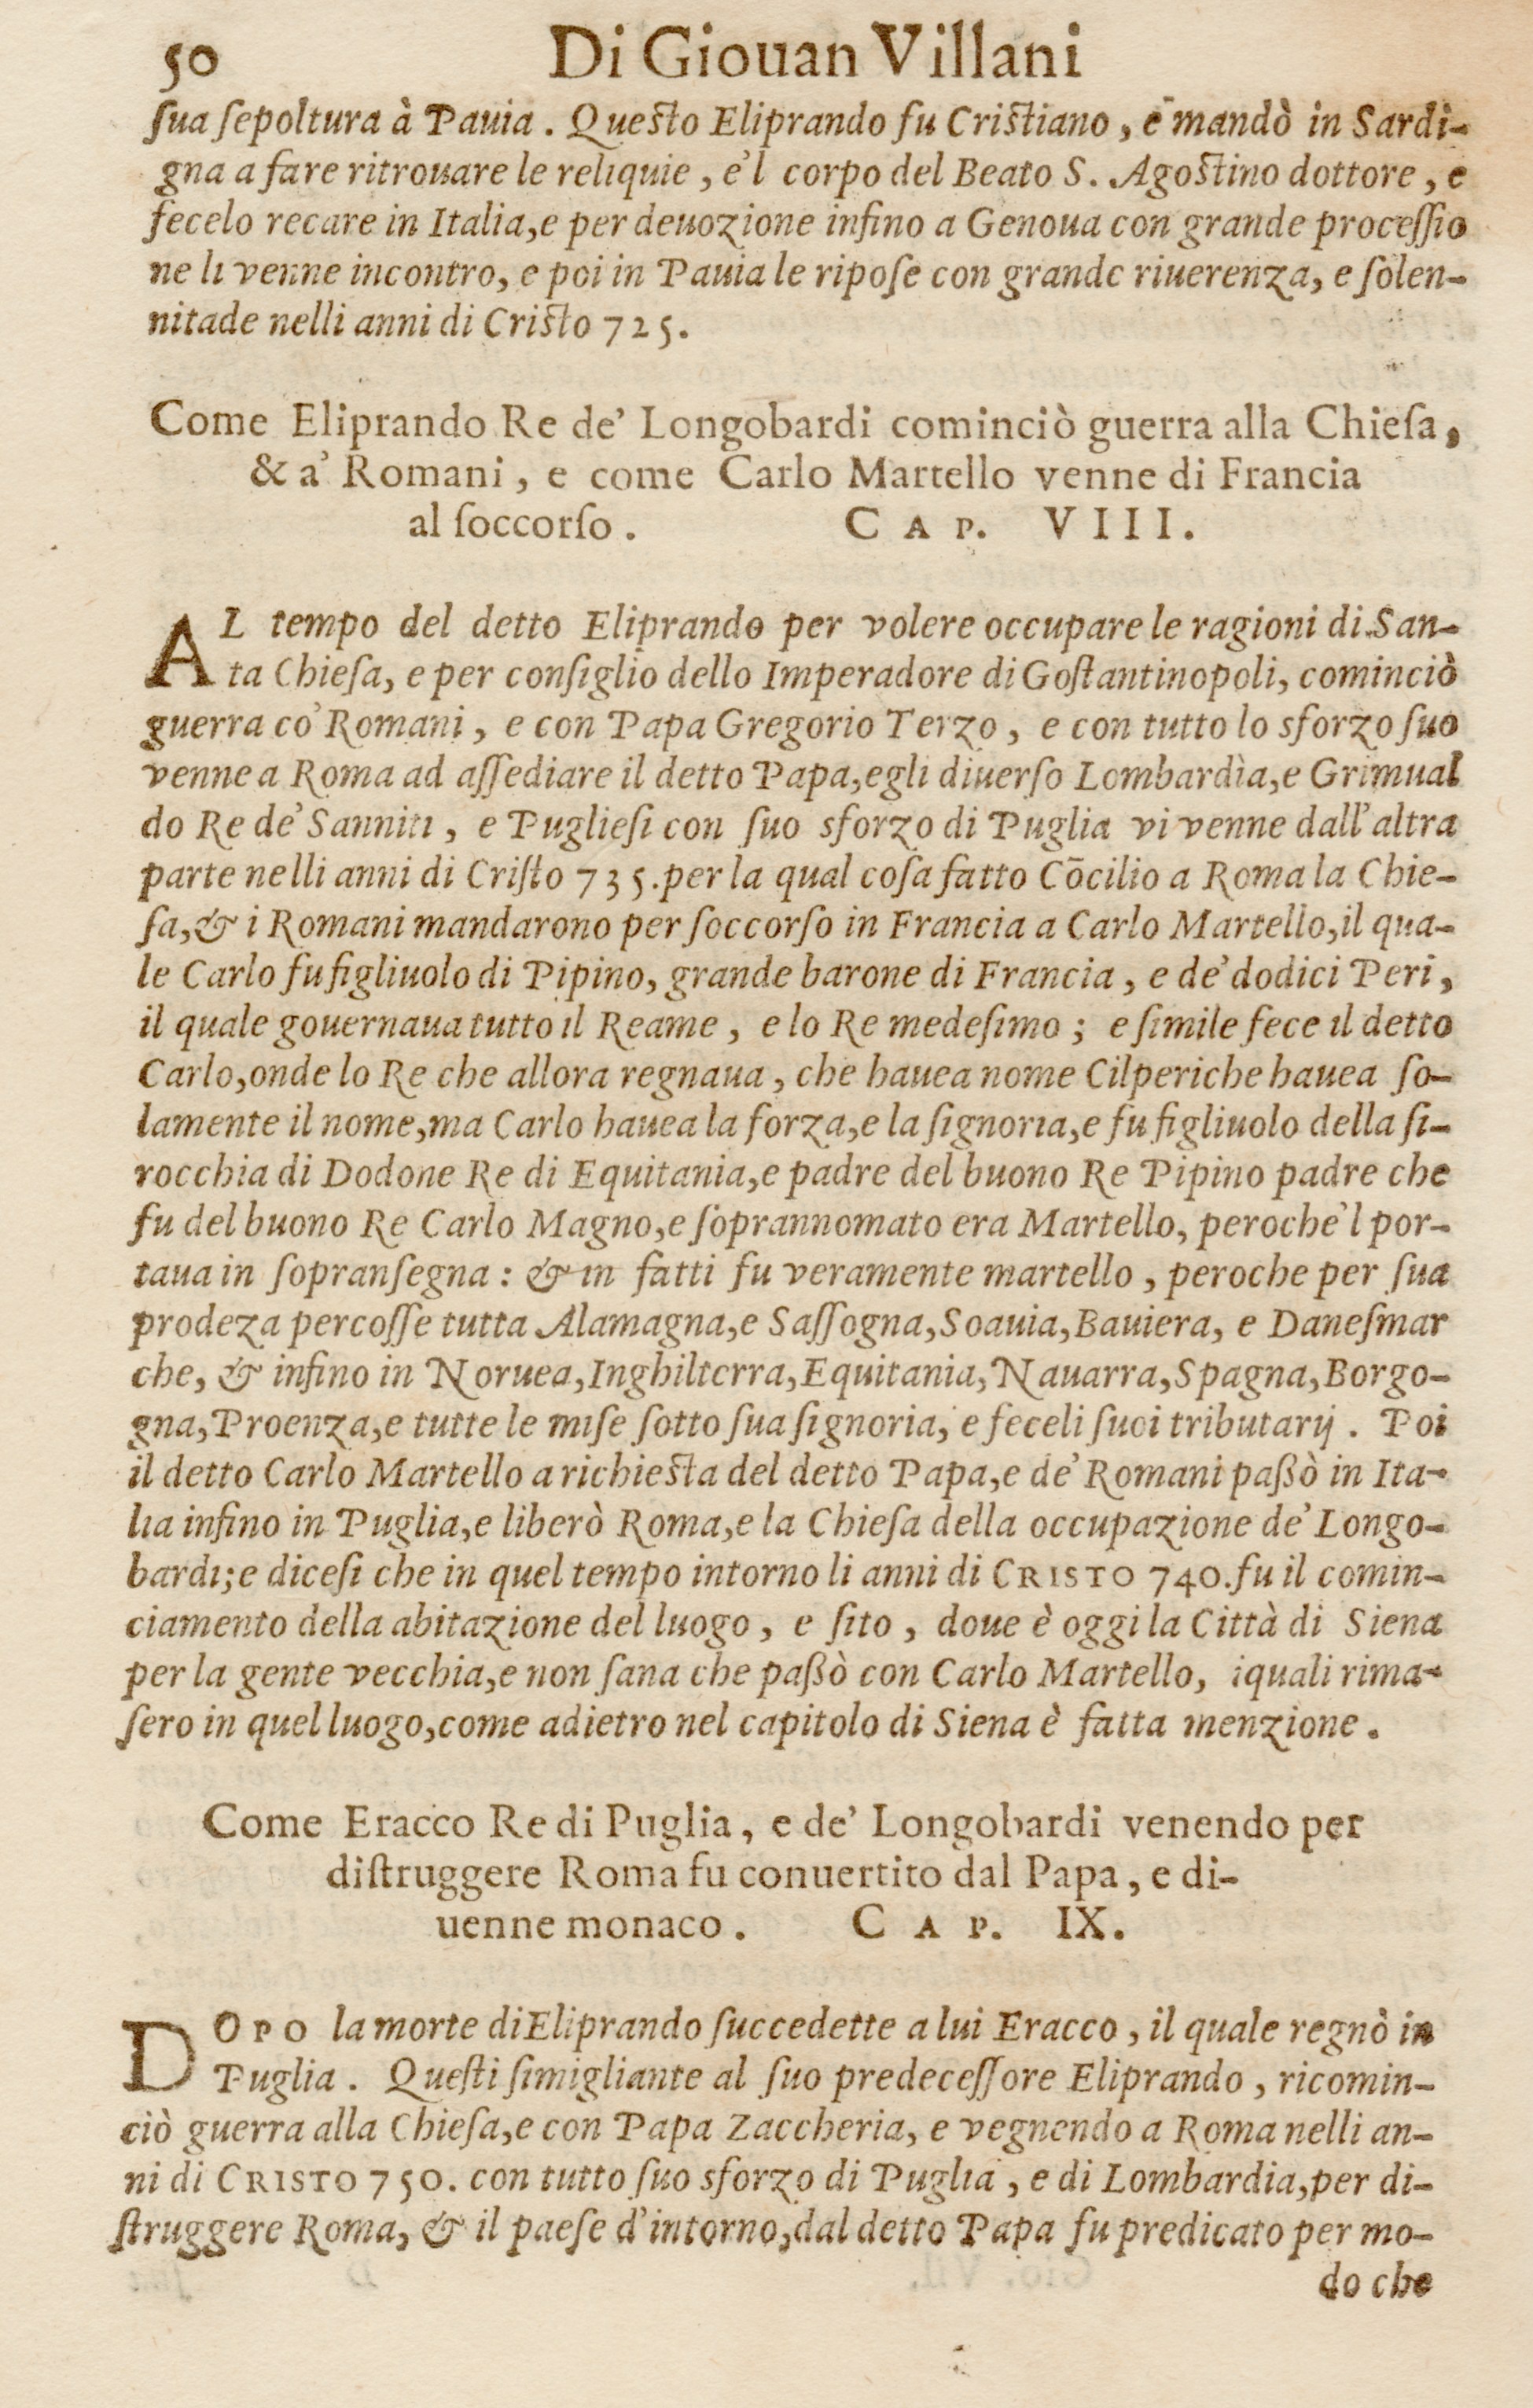 50 Di Giouan Villani
ſua ſepoltura à Pauia. Queſto Eliprando fu Criſtiano, e mandò in Sardi-
gna a fare ritrouare le reliquie, e'l corpo del Beato S. Agoſtino dottore, e
fecelo recare in Italia, e per deuozione infino a Genoua con grande proceſſio
ne li venne incontro, e poi in Pauia le ripoſe con grande riuerenza, e ſolen-
nitade nelli anni di Criſto 725.
Come Eliprando Re de' Longobardi cominciò guerra alla Chieſa,
& a' Romani, e come Carlo Martello venne di Francia
al ſoccorſo. CAP. VIII.
AL tempo del detto Eliprando per volere occupare le ragioni di San-
ta Chieſa, e per conſiglio dello Imperadore di Goſtantinopoli, cominciò
guerra co' Romani, e con Papa Gregorio Terzo, e con tutto lo sforzo ſuo
venne a Roma ad aſſediare il detto Papa, egli diuerſo Lombardìa, e Grimual
do Re de' Sanniti, e Puglieſi con ſuo sforzo di Puglia vi venne dall'altra
parte nelli anni di Criſto 735. per la qual coſa fatto Cōcilio a Roma la Chie-
ſa, & i Romani mandarono per ſoccorſo in Francia a Carlo Martello, il qua-
le Carlo fu figliuolo di Pipino, grande barone di Francia, e de' dodici Peri,
il quale gouernaua tutto il Reame, e lo Re medeſimo; e ſimile fece il detto
Carlo, onde lo Re che allora regnaua, che hauea nome Cilperiche hauea ſo-
lamente il nome, ma Carlo hauea la forza, e la ſignoria, e fu figliuolo della ſi-
rocchia di Dodone Re di Equitania, e padre del buono Re Pipino padre che
fu del buono Re Carlo Magno, e ſoprannomato era Martello, peroche'l por-
taua in ſopranſegna: & in fatti fu veramente martello, peroche per ſua
prodeza percoſſe tutta Alamagna, e Saſſogna, Soauia, Bauiera, e Daneſmar
che, & infino in Noruea, Inghilterra, Equitania, Nauarra, Spagna, Borgo-
gna, Proenza, e tutte le miſe ſotto ſua ſignoria, e feceli ſuoi tributarij. Poi
il detto Carlo Martello a richieſta del detto Papa, e de' Romani paßò in Ita-
lia infino in Puglia, e liberò Roma, e la Chieſa della occupazione de' Longo-
bardi; e diceſi che in quel tempo intorno li anni di CRISTO 740. fu il comin-
ciamento della abitazione del luogo, e ſito, doue è oggi la Città di Siena
per la gente vecchia, e non ſana che paßò con Carlo Martello, iquali rima-
ſero in quel luogo, come adietro nel capitolo di Siena è fatta menzione.
Come Eracco Re di Puglia, e de' Longobardi venendo per
diſtruggere Roma fu conuertito dal Papa, e di-
uenne monaco. CAP. IX.
DOPO la morte di Eliprando ſuccedette a lui Eracco, il quale regnò in
Puglia. Queſti ſimigliante al ſuo predeceſſore Eliprando, ricomin-
ciò guerra alla Chieſa, e con Papa Zaccheria, e vegnendo a Roma nelli an-
ni di CRISTO 750. con tutto ſuo sforzo di Puglia, e di Lombardia, per di-
ſtruggere Roma, & il paeſe d'intorno, dal detto Papa fu predicato per mo-
do che